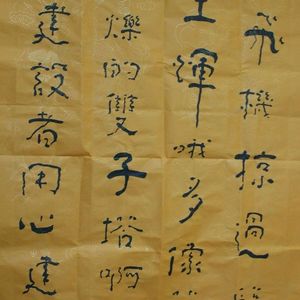 飛機掠過
輝哦多像
爍的雙子塔啊
建設者用心建